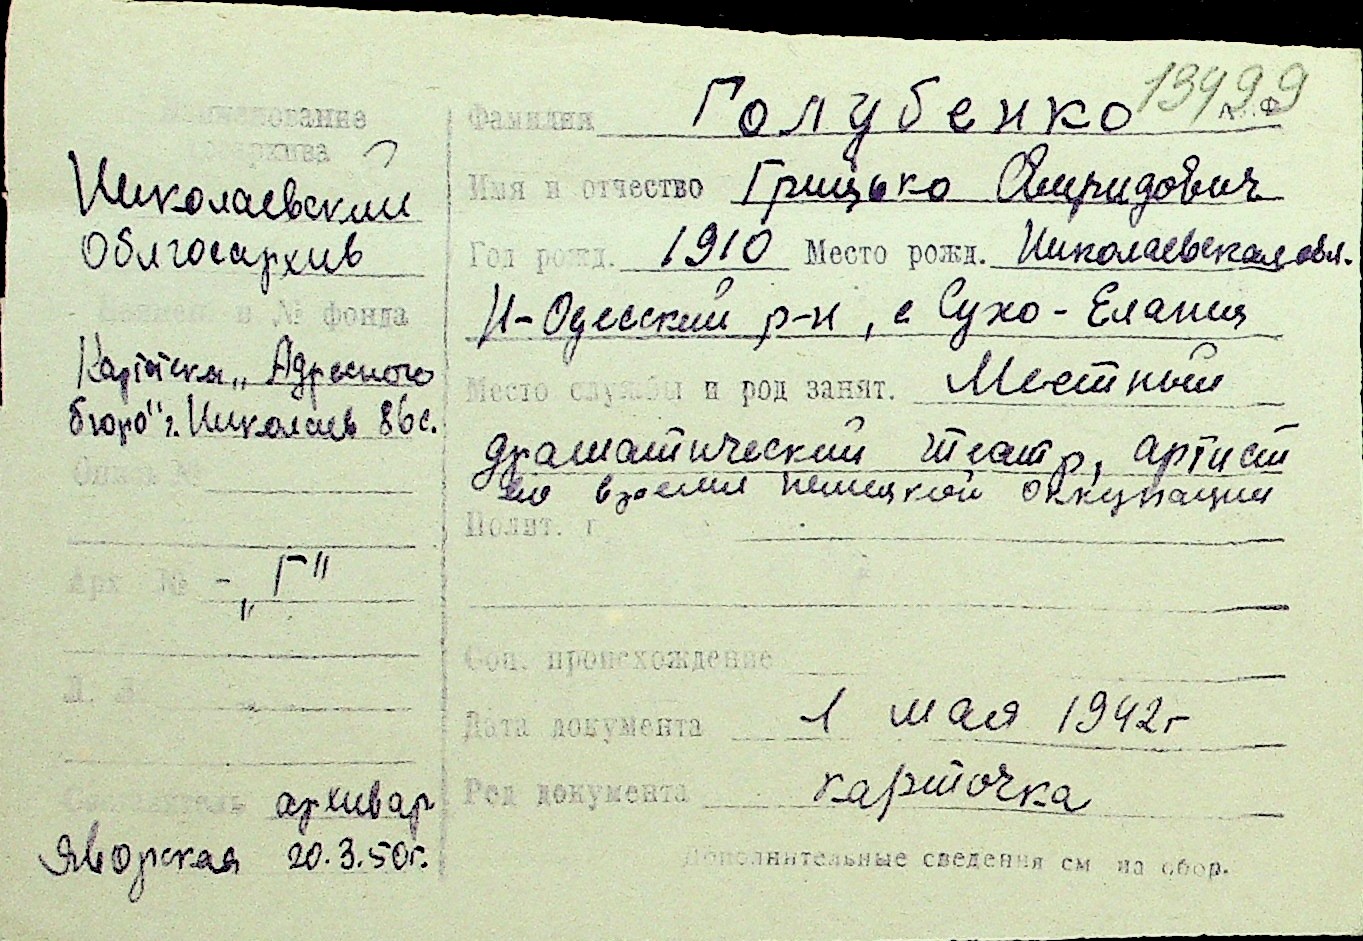 13499
Наименование
госархива
Николаевский
Облгосархив
и № фонда
Картотека „Адресного
бюро" г. Николаев 86с.
Опись №
Арх №
- „Г"
Л. Л.
Составитель архивар
Яворская 20.3.50г.
Фамилия Голубенко
Имя и отчество Грицько Спиридович
Год рожд. 1910 Место рожд. Николаевская обл.
Н-Одесский р-н, с Сухо-Еланец
Место службы и род занят. Местный
драматический театр, артист
во время немецкой оккупации
Полит.
Соц. происхождение
Дата документа 1 мая 1942г
Род документа карточка
Дополнительные сведения см на обор.